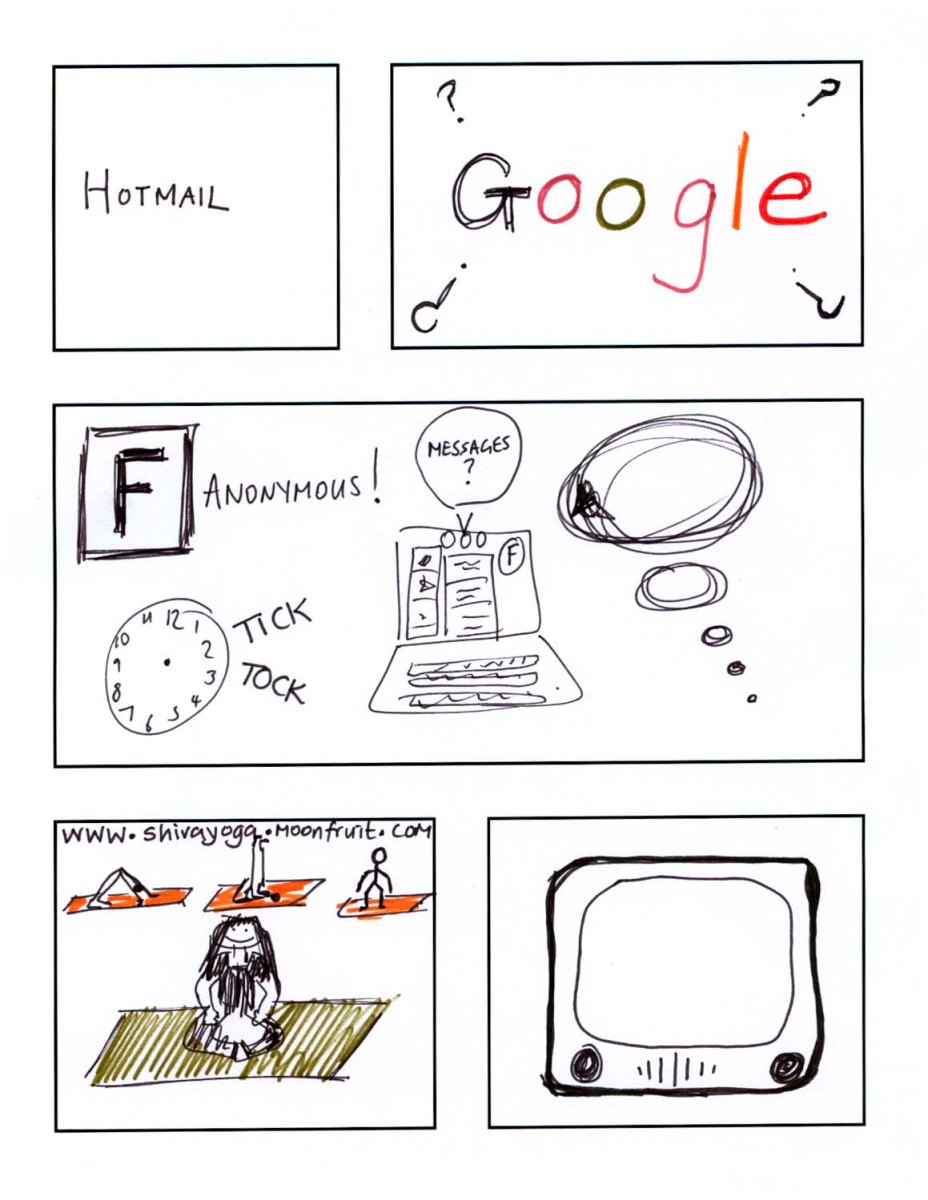 HOTMAIL
? ?
Google
? ?
F
ANONYMOUS!
MESSAGES
?
F
TICK
TOCK
11 12 1
10 2
9 3
8 4
7 6 5
www.shivayoga.moonfruit.com